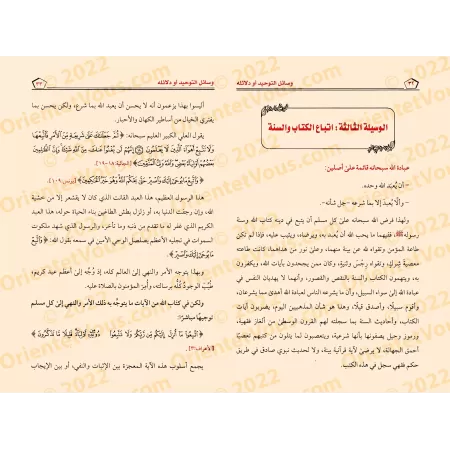 وسائل التوحيد أو دلائله
٣٢
الوسيلة الثالثة: اتباع الكتاب والسنة
عبادة الله سبحانه قائمة على أصلين:
- أن يُعبد الله وحده.
- وألا يُعبد إلا بما شرعه - جل شأنه -.
ولهذا فرض الله سبحانه على كل مسلم أن يتبع في دينه كتاب الله وسنة
رسوله ﷺ، ففيهما ما يحب الله أن يُعبد به، ويرضاه، ويثيب عليه، فإذا لم تكن
طاعة المؤمن وتقواه لله عن بينة منهما، وعلى نور من هداهما كانت طاعته
معصية شرك، وتقواه رجس وثنية، وكان ممن يفترون الكذب على الله، ويكفرون
به، ويتهمون الكتاب والسنة بالنقص والقصور، وأنهما لا يهديان النفس في
عبادة الله إلى سواء السبيل، وأن ما يشرعه الناس لعبادة الله أهدى مما يشرعان،
وأقوم سبيلًا، وأصدق قيلًا، وهذا هو شأن المذهبيين اليوم، يضربون آيات
الكتاب، وأحاديث السنة بما سجلته لهم القرون الوسطى من ألغاز فقهية،
ورموز وحيل يصفونها بأنها شرعية، ويتعصبون لما يتدين به كهنهم تعصبًا
أحمق الجهالة، لا يرضى لآية قرآنية بينة، ولا لحديث نبوي صادق في طريق
حكم فقهي سجل في هذه الكتب.
وسائل التوحيد أو دلائله
٣٣
أليسوا بهذا يزعمون أنه لا يحسن أن يعبد الله بما شرع، ولكن يحسن بما
يفتري الخيال من أساطير الكهان والأحبار.
يقول العلي الكبير العليم سبحانه: ﴿ ثُمَّ جَعَلْنَاكَ عَلَى شَرِيعَةٍ مِنَ الْأَمْرِ فَاتَّبِعْهَا
وَلَا تَتَّبِعْ أَهْوَاءَ الَّذِينَ لَا يَعْلَمُونَ ۝ إِنَّهُمْ لَن يُغْنُوا عَنكَ مِنَ اللَّهِ شَيْئًا وَإِنَّ الظَّالِمِينَ
بَعْضُهُمْ أَوْلِيَاءُ بَعْضٍ وَاللَّهُ وَلِيُّ الْمُتَّقِينَ ﴾ [الجاثية: ١٨-١٩].
﴿ وَاتَّبِعْ مَا يُوحَى إِلَيْكَ وَاصْبِرْ حَتَّى يَحْكُمَ اللَّهُ وَهُوَ خَيْرُ الْحَاكِمِينَ ﴾ [يونس: ١٠٩].
هذا الرسول العظيم، هذا العبد القانت الذي كان لا يفتر من خشية
الله، وإن رجفت الدنيا به، أو زلزل بطش الطاغين بناء الحياة حوله، هذا العبد
الكريم الذي غفر له ما تقدم من ذنبه وما تأخر، والرسول الذي شهد ملكوت
السماوات في تجليه الأعظم بصلصل الوحي الأمين في سمعه بقول الله: ﴿ وَاتَّبِعْ
مَا يُوحَى إِلَيْكَ وَاصْبِرْ ﴾.
وبهذا يتوجه الأمر والنهي إلى العالم كله، إذ وُجِّه إلى أعظم عبد كريم،
طيب الوجود كُلُّه برسالته، وأبرّ المؤمنون بالصلاة عليه.
ولكن في كتاب الله من الآيات ما يتوجه به ذلك الأمر والنهي إلى كل مسلم
توجيهًا مباشرًا:
﴿ اتَّبِعُوا مَا أُنزِلَ إِلَيْكُم مِّن رَّبِّكُمْ وَلَا تَتَّبِعُوا مِن دُونِهِ أَوْلِيَاءَ قَلِيلًا مَّا تَذَكَّرُونَ ﴾
[الأعراف: ٣].
يجمع أسلوب هذه الآية المعجزة بين الإثبات والنفي، أو بين الإيجاب
OrientetVous.com © 2022